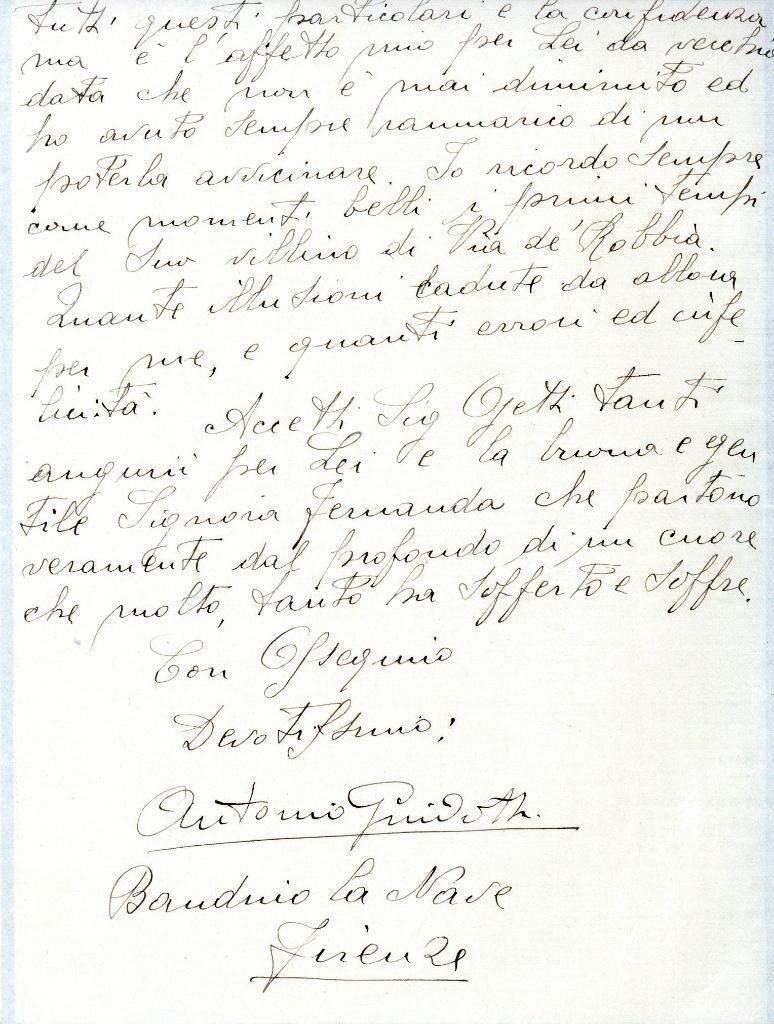 tutti questi particolari e la confidenza
ma è l'affetto mio per Lei da vecchia
data che non è mai diminuito ed
ho avuto sempre rammarico di non
poterla avvicinare. Io ricordo sempre
come momenti belli i primi tempi
del Suo villino di Via de' Robbia.
Quante illusioni cadute da allora
per me, e quanti errori ed infe-
licità.
Accetti Sig Ojetti tanti
auguri per Lei e la buona e gen
tile Signora Fernanda che partono
veramente dal profondo di un cuore
che molto, tanto ha sofferto e soffre.
Con Ossequio
Devotissimo:
Antonio Guidotti.
Bandino la Nave
Firenze